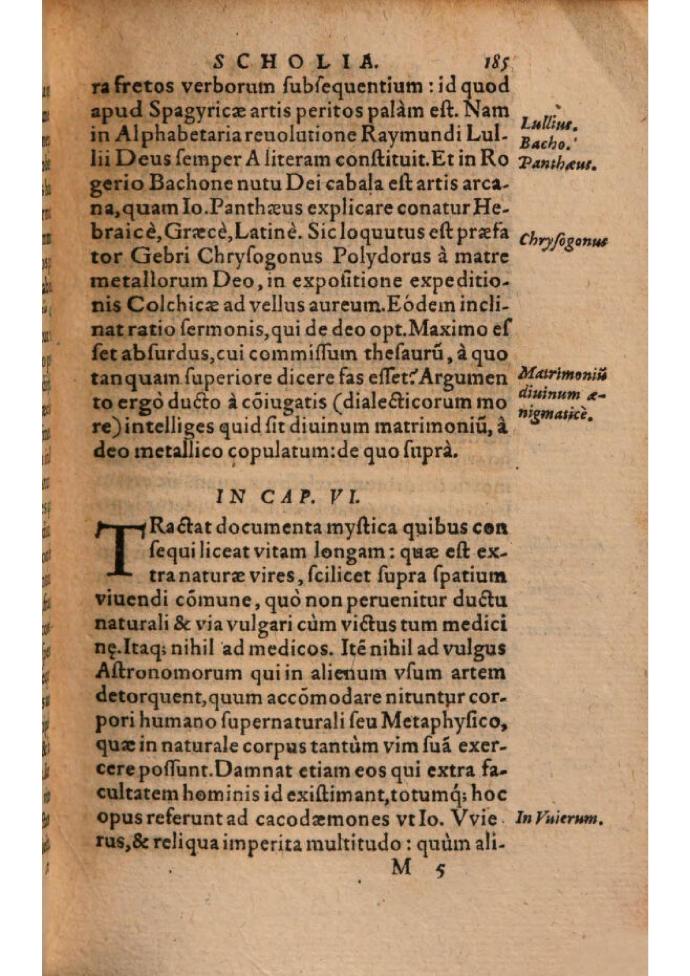 SCHOLIA. 185
ra fretos verborum ſubſequentium : id quod
apud Spagyricæ artis peritos palàm eſt. Nam
in Alphabetaria reuolutione Raymundi Lul-
lii Deus ſemper A literam conſtituit. Et in Ro
gerio Bachone nutu Dei cabala eſt artis arca-
na, quam Io. Panthæus explicare conatur He-
braicè, Græcè, Latinè. Sic loquutus eſt præfa
tor Gebri Chryſogonus Polydorus à matre
metallorum Deo, in expoſitione expeditio-
nis Colchicæ ad vellus aureum. Eódem incli-
nat ratio ſermonis, qui de deo opt. Maximo eſ
ſet abſurdus, cui commiſſum theſaurũ, à quo
tanquam ſuperiore dicere fas eſſet? Argumen
to ergò ducto à cõiugatis (dialecticorum mo
re) intelliges quid ſit diuinum matrimoniũ, à
deo metallico copulatum: de quo ſuprà.
Lullius.
Bacho.
Panthæus.
Chryſogonus
Matrimoniũ
diuinum æ-
nigmaticè.
IN CAP. VI.
TRactat documenta myſtica quibus con
ſequi liceat vitam longam : quæ eſt ex-
tra naturæ vires, ſcilicet ſupra ſpatium
viuendi cõmune, quò non peruenitur ductu
naturali & via vulgari cùm victus tum medici
nę. Itaq; nihil ad medicos. Itẽ nihil ad vulgus
Aſtronomorum qui in alienum vſum artem
detorquent, quum accõmodare nituntur cor-
pori humano ſupernaturali ſeu Metaphyſico,
quæ in naturale corpus tantùm vim ſuã exer-
cere poſſunt. Damnat etiam eos qui extra fa-
cultatem hominis id exiſtimant, totumq́; hoc
opus referunt ad cacodæmones vt Io. Vvie
rus, & reliqua imperita multitudo : quùm ali-
In Vuierum.
M 5